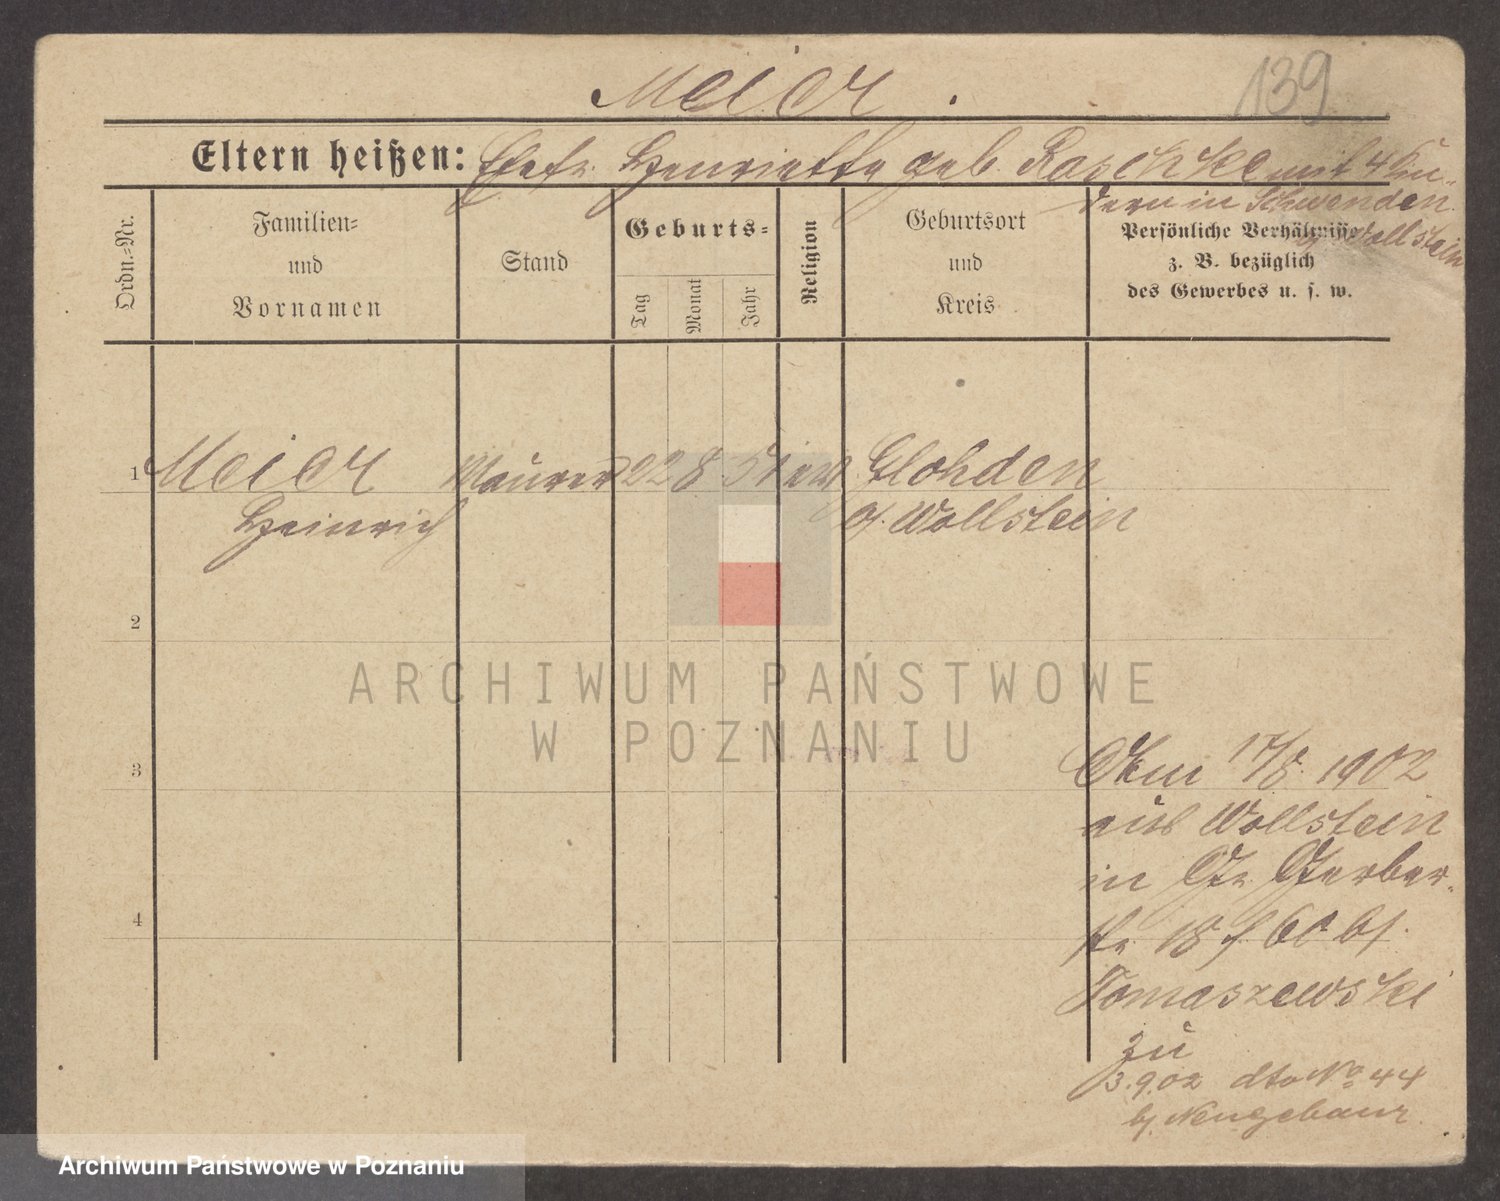 Meier.
139
Eltern heißen: Ehefr. Henriette geb. Raschke mit 4 Kin-
dern in Schwenden
bj Wollstein
Ordn.-Nr.
Familien-
und
Vornamen
Stand
Geburts-
Tag
Monat
Jahr
Religion
Geburtsort
und
Kreis
Persönliche Verhältnisse
z. B. bezüglich
des Gewerbes u. s. w.
1 Meier Maurer 22 8 51 ew Glohden
Heinrich bj. Wollstein
2
3
4
17/8. 1902
aus Wollstein
in Gerber-
str 18 bj.
Tomaszewski
zu
3.9.02 dto No 44
bj Neugebaur
ARCHIWUM PAŃSTWOWE
W POZNANIU
Archiwum Państwowe w Poznaniu